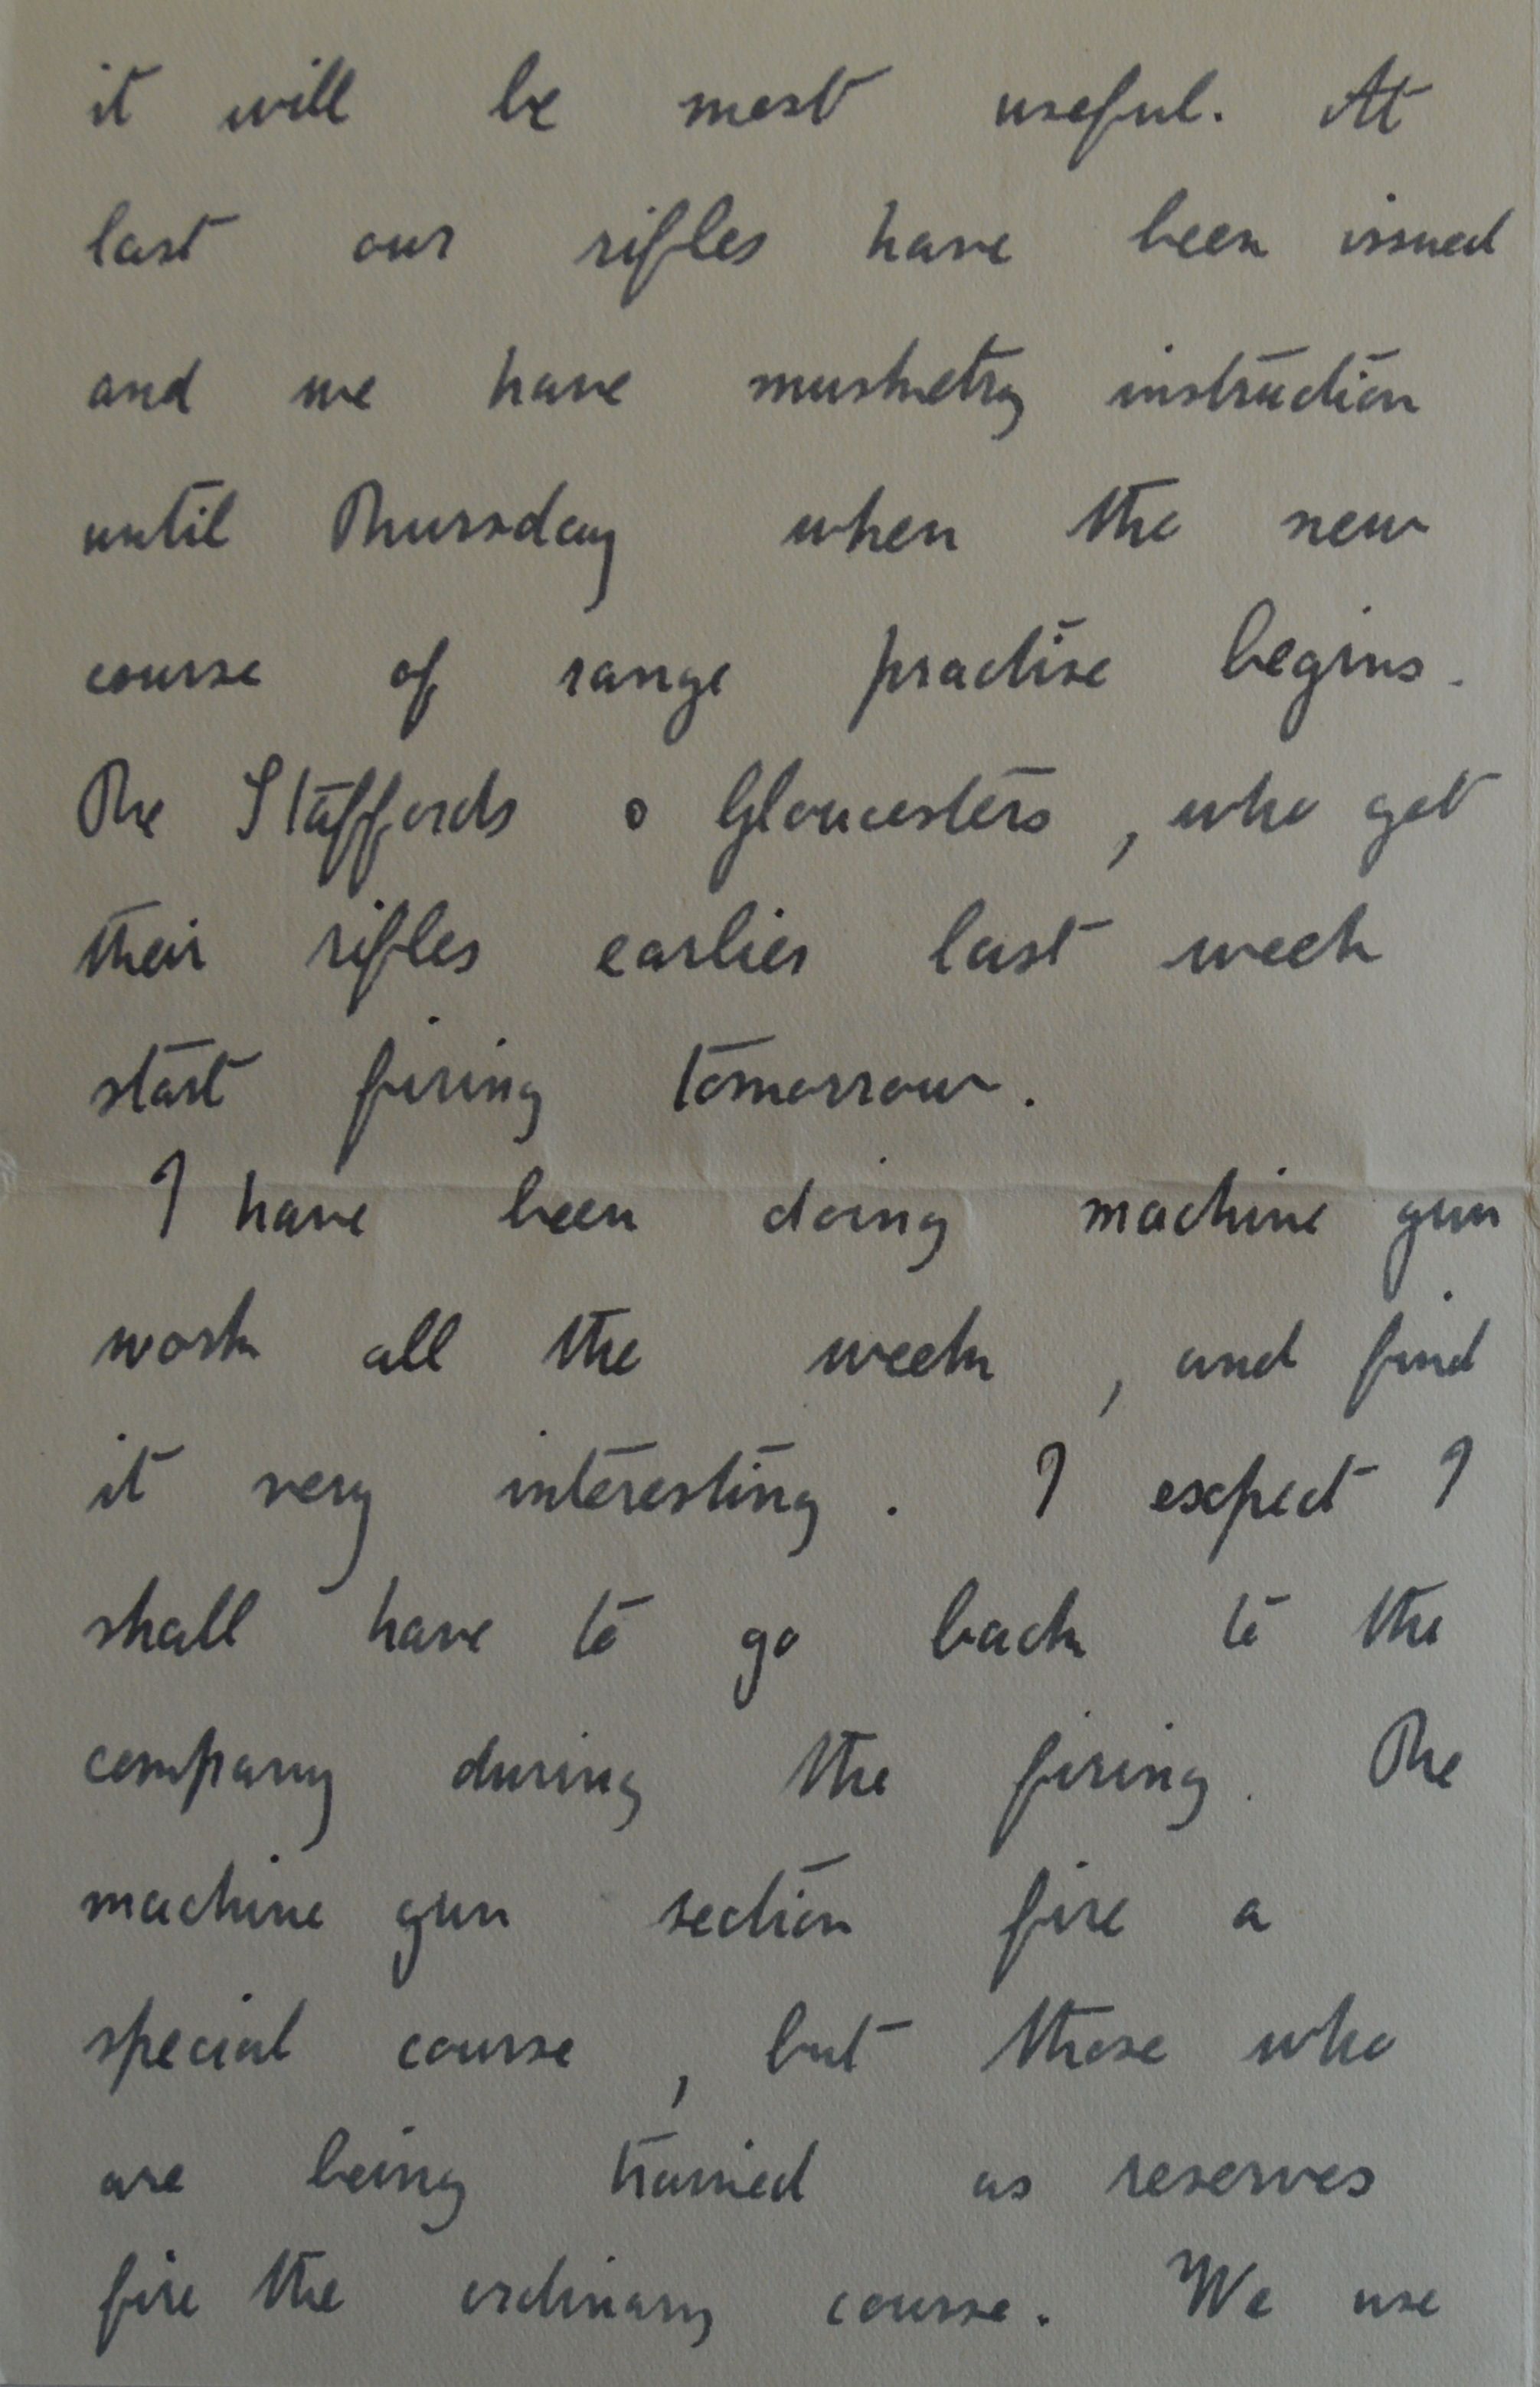 it will be most useful. At
last our rifles have been issued
and we have musketry instruction
until Thursday when the new
course of range practise begins.
The Staffords & Gloucesters, who got
their rifles earlier last week
start firing tomorrow.
I have been doing machine gun
work all the week, and find
it very interesting. I expect I
shall have to go back to the
company during the firing. The
machine gun section fire a
special course, but those who
are being trained as reserves
fire the ordinary course. We use